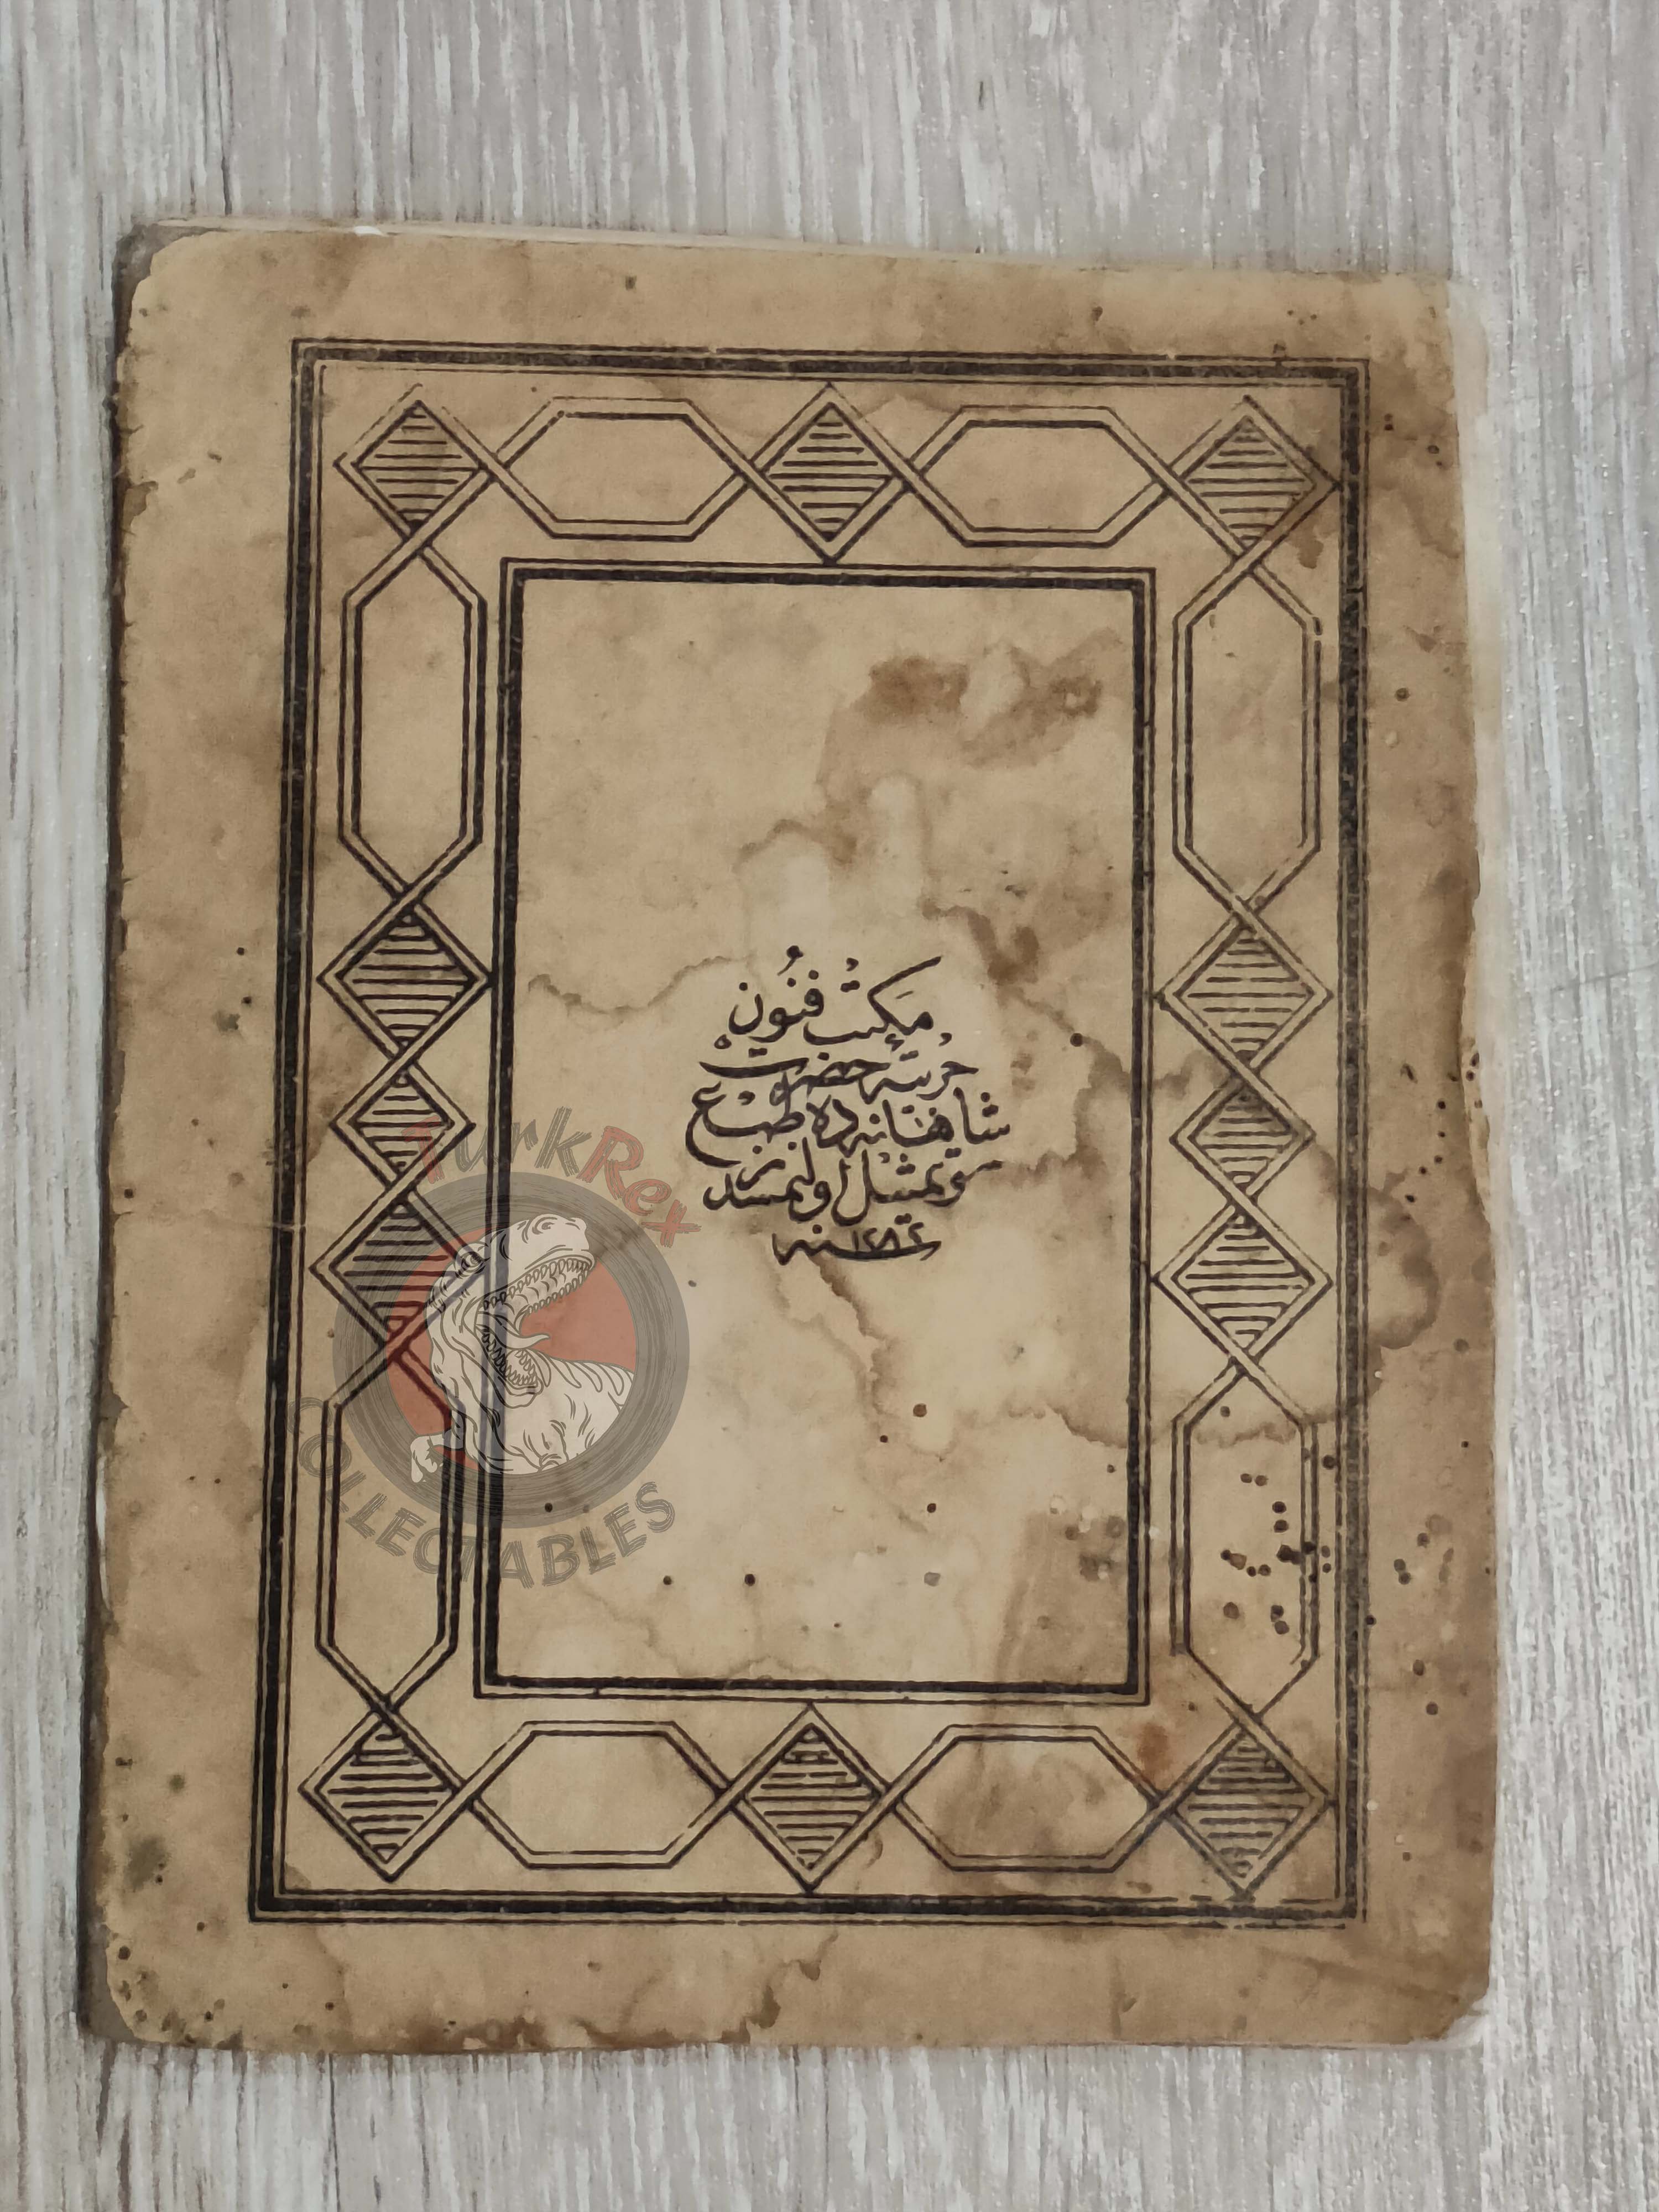 مكتب فنون
حربيۀ حضرت
شاهانه ده طبع
وتمثيل اولنمشدر
سنه ١٢٨٢
TurkRex
COLLECTABLES